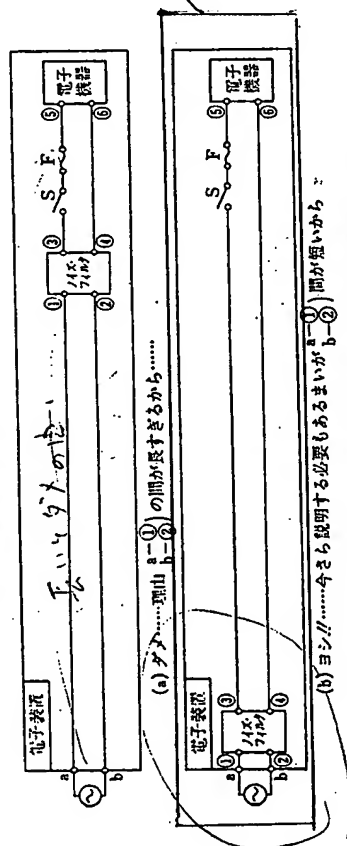 電子装置
a
b
①
②
ノイズ・
フィルタ
③
④
S
F
⑤
⑥
電子
機器
(a) ダメ……理由 a-① b-② )の間が長すぎるから……
電子装置
a
b
①
②
ノイズ・
フィルタ
③
④
S
F
⑤
⑥
電子
機器
(b) ヨシ!!……今さら説明する必要もあるまいが a-① b-② )間が短いから